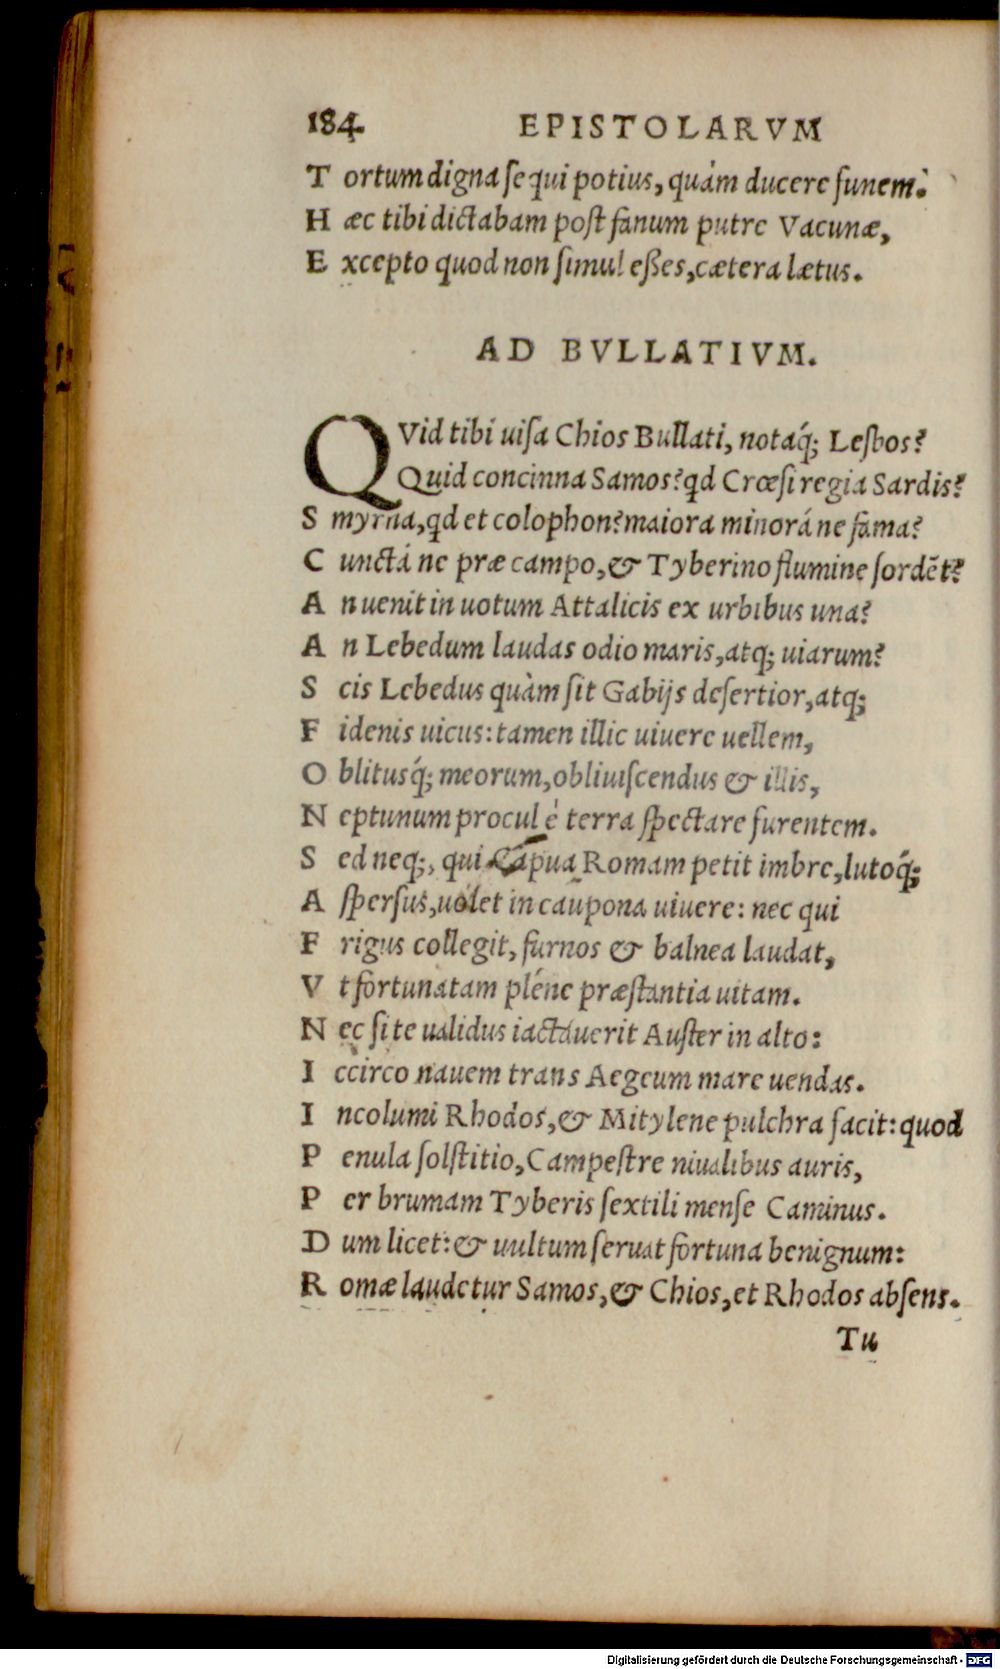 184. EPISTOLARVM
T ortum digna ſequi potius, quàm ducere funem.
H æc tibi dictabam poſt fanum putre Vacunæ,
E xcepto quod non ſimul eſſes, cætera lætus.
AD BVLLATIVM.
QVid tibi uiſa Chios Bullati, notaq́; Lesbos?
Quid concinna Samos? qd Crœſi regia Sardis?
S myrna, qd et colophon? maiora minoráne fama?
C unctáne præ campo, & Tyberino flumine ſordēt?
A n uenit in uotum Attalicis ex urbibus una?
A n Lebedum laudas odio maris, atq; uiarum?
S cis Lebedus quàm ſit Gabijs deſertior, atq;
F idenis uicus: tamen illic uiuere uellem,
O blitusq́; meorum, obliuiſcendus & illis,
N eptunum procul è terra ſpectare furentem.
S ed neq;, qui Capua Romam petit imbre, lutoq́;
A ſperſus, uolet in caupona uiuere: nec qui
F rigus collegit, furnos & balnea laudat,
V t fortunatam pléne præſtantia uitam.
N ec ſi te ualidus iactáuerit Auſter in alto:
I ccirco nauem trans Aegeum mare uendas.
I ncolumi Rhodos, & Mitylene pulchra facit: quod
P enula ſolſtitio, Campeſtre niualibus auris,
P er brumam Tyberis ſextili menſe Caminus.
D um licet: & uultum ſeruat fortuna benignum:
R omæ laudetur Samos, & Chios, et Rhodos abſens.
Tu
Digitalisierung gefördert durch die Deutsche Forschungsgemeinschaft - DFG